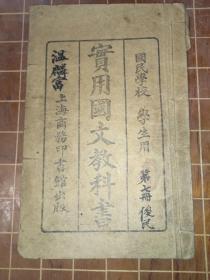 國民學校 學生用
第七冊
實用國文教科書
上海商務印書館出版